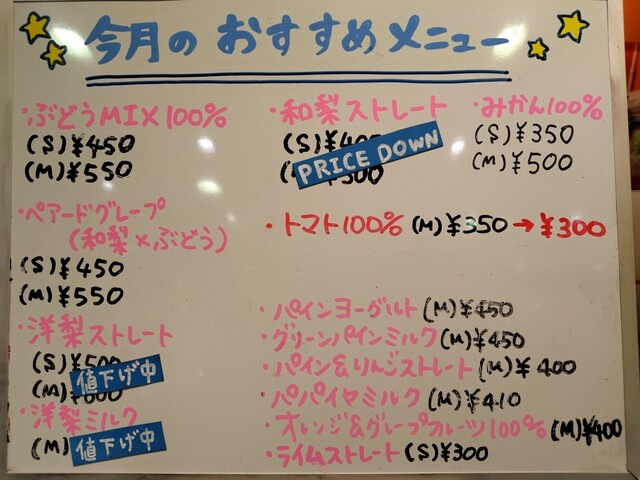 今月のおすすめメニュー
・ぶどうMIX100%
(S)¥450
(M)¥550
・ペアードグレープ
(和梨×ぶどう)
(S)¥450
(M)¥550
・洋梨ストレート
(S)¥500
(M)
値下げ中
・洋梨ミルク
(M)
値下げ中
・和梨ストレート
(S)¥400
PRICE DOWN
・みかん100%
(S)¥350
(M)¥500
・トマト100% (M)¥350→¥300
・パインヨーグルト(M)¥450
・グリーンパインミルク(M)¥450
・パイン&りんごストレート(M)¥400
・パパイヤミルク(M)¥410
・オレンジ&グレープフルーツ100%(M)¥400
・ライムストレート(S)¥300